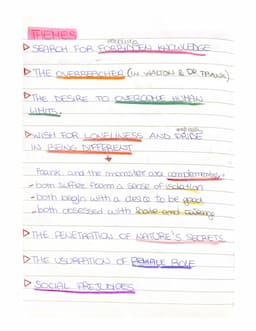 THEMES
▷ SEARCH FOR FORBIDDEN KNOWLEDGE
▷ THE OVERREACHER (in WALTON & DR FRANK)
▷ THE DESIRE TO OVERCOME HUMAN
LIMITS.
▷ WISH FOR LONELINESS AND PRIDE
IN BEING DIFFERENT
Frank. and the monster are complementary:
- both suffer from a sense of isolation
- both begin with a desire to be good
- both obsessed with hate and revenge
▷ THE PENETRATION OF NATURE'S SECRETS
▷ THE USURPATION OF FEMALE ROLE
▷ SOCIAL PREJUDICES